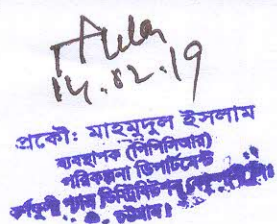 14.02.19
প্রকৌ: মাহমুদুল ইসলাম
ব্যবস্থাপক (পিপিসিআর)
পরিকল্পনা ডিপার্টমেন্ট
কর্ণফুলী গ্যাস ডিস্ট্রিবিউশন
চট্টগ্রাম।